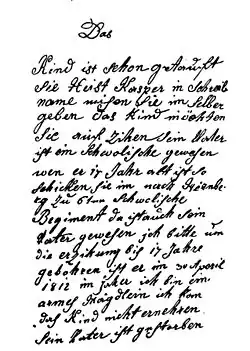 Das
Kind ist schon getauft
Sie Heist Kasper in Schreib
name misen Sie im selber
geben das Kind möchten
Sie auf Zihen Sein Vater
ist ein Schwolische gewesen
wen er 17 Jahr alt ist so
schicken Sie im nach Nirnbe
rg zu 6ten Schwolische
Regiment da ist auch sein
Vater gewesen ich bitte um
die erzikung bis 17 Jahre
gebohren ist er im 30 Aperil
1812 im Jaher ich bin ein
armes Mägdlein ich kan
das Kind nicht ernehren
Sein Vater ist gestorben